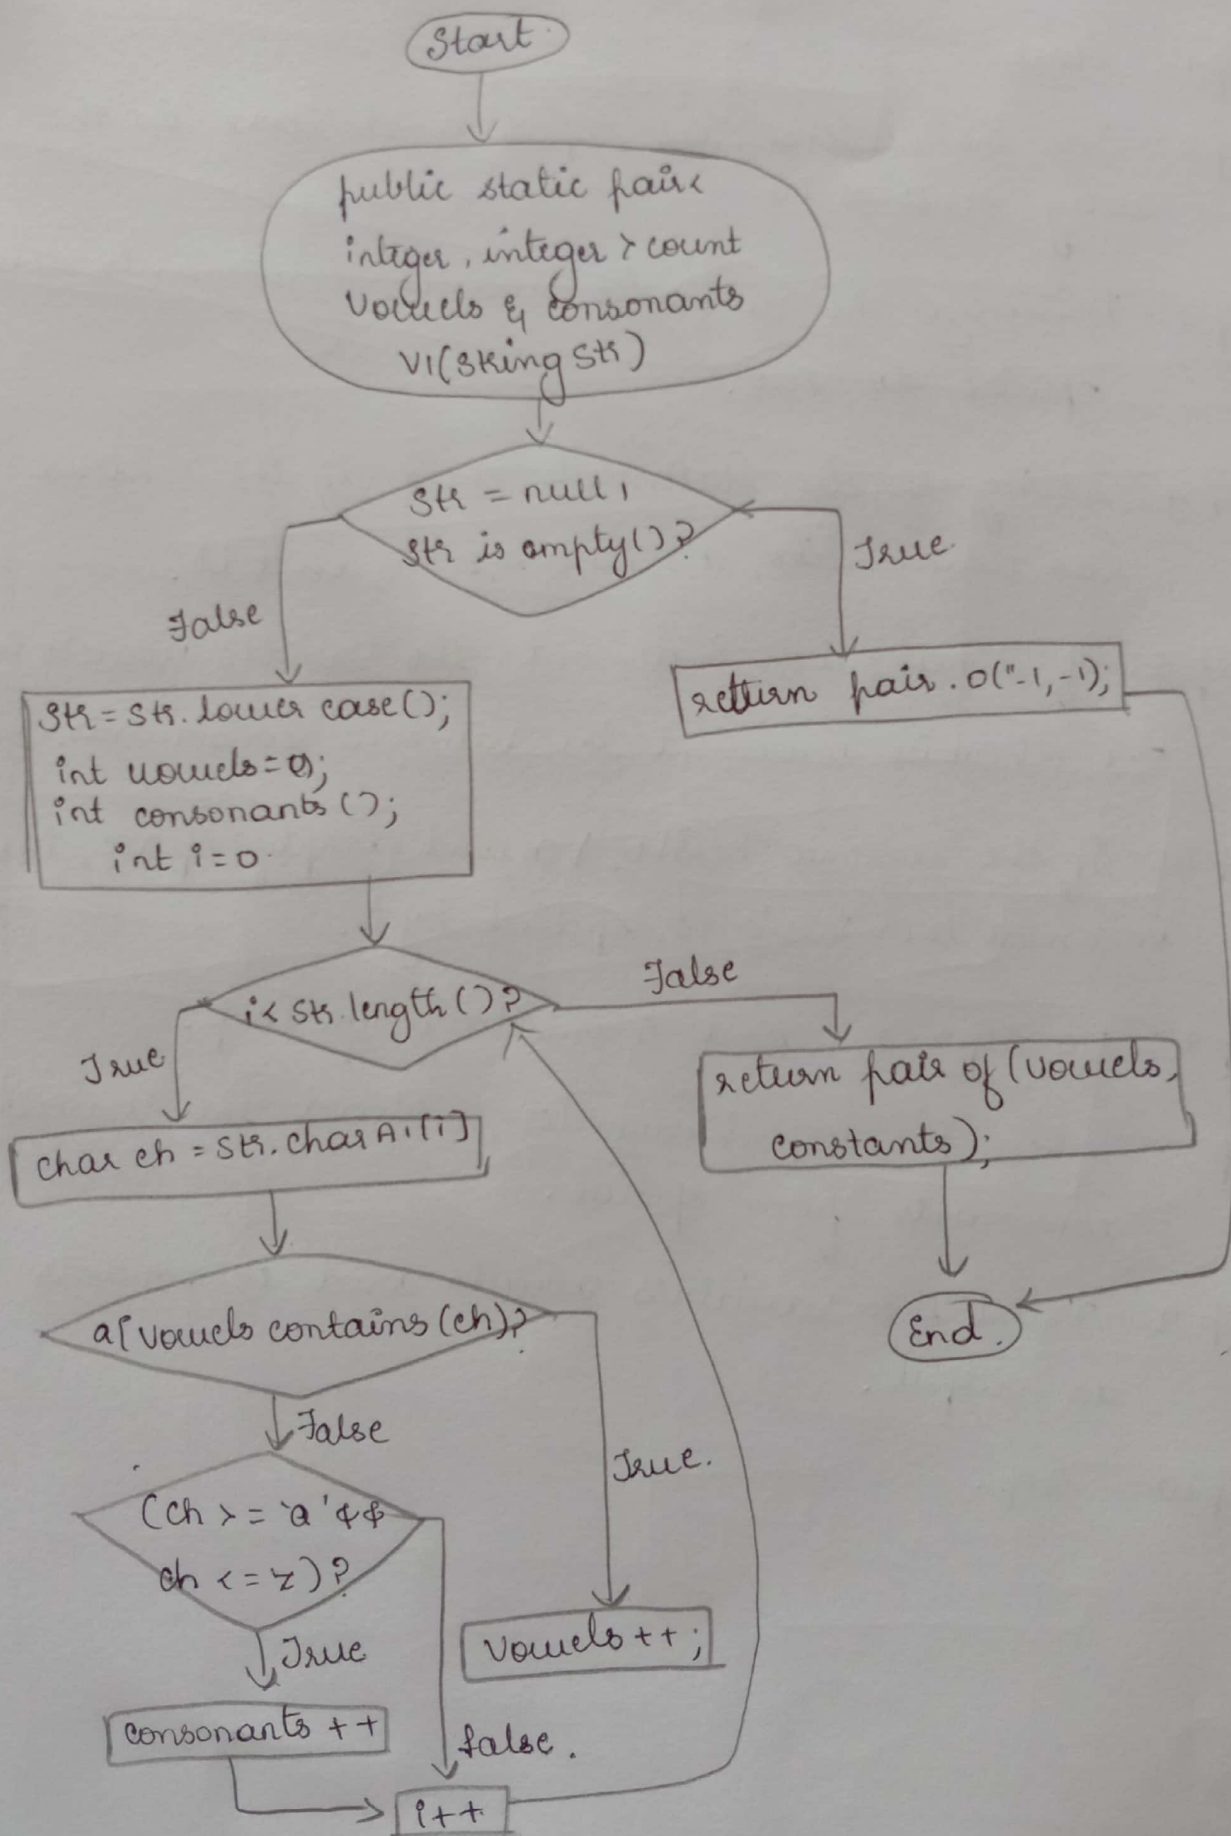 Start
public static pair<
integer, integer > count
vowels & consonants
V1(string str)
str = null,
str is empty()?
True
False
return pair.o("-1,-1);
str = str. lower case();
int vowels=0;
int consonants();
int i=0
i< str.length()?
False
True
return pair of (vowels,
constants);
char ch = str.charAt[i]
a[vowels contains (ch)?
End.
False
True.
(ch >= 'a' &&
ch <= z)?
True
vowels ++;
consonants ++
false.
i++